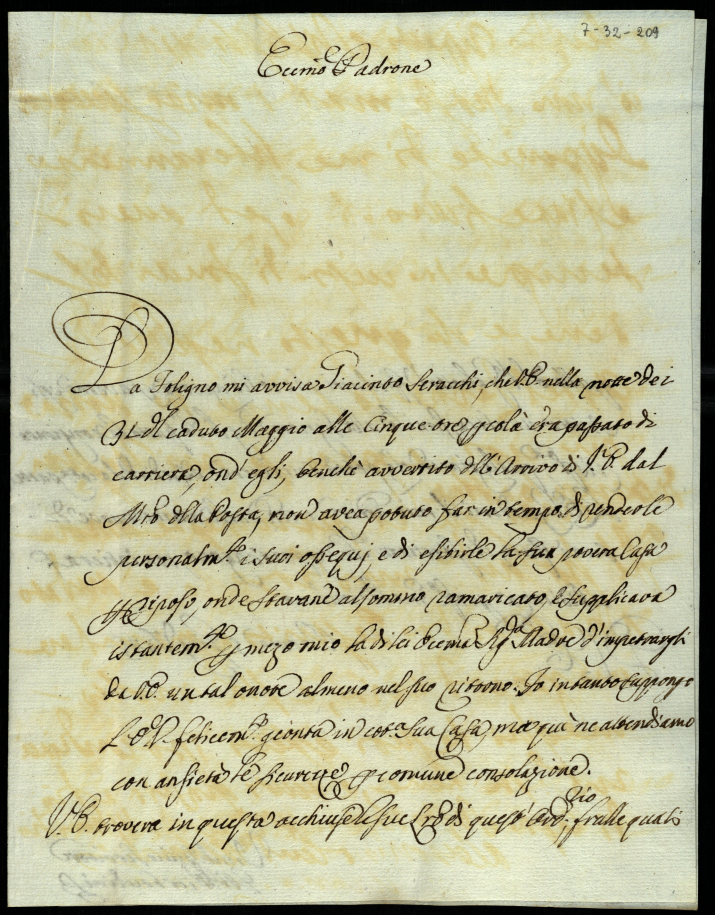 7-32-209
Eccmo Padrone
Da Foligno mi avvisa Giacinto Seracchi, che V.E. nella notte dei
31 del caduto Maggio alle Cinque ore colà era passato di
carriera, ond'egli, benchè avvertito dell'Arrivo di V.E. dal
Mro della Posta, non avea potuto far in tempo di renderle
personalmte i suoi ossequj, e di esibirle la sua povera Casa
Riposo, onde stavane al sommo ramaricato, e supplicava
istantemte mezo mio la di lei Eccma Sigra Madre d'impetrargli
da V.E. un tal onore almeno nel suo ritorno. Io intanto suppongo
L'E.V. felicemte gionta in cotta Sua Casa, ma quà ne attendiamo
con ansietà le sicurezze comune consolazione.
V.E. troverà in questa acchiuse le sue Lre di quest' Ordrio, fralle quali